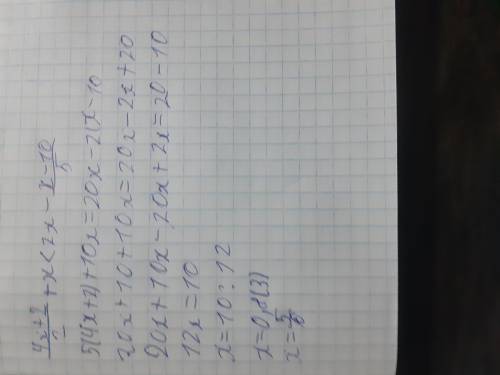 (4x+2)/2 + x < 2x - (x-10)/5
5(4x+2)+10x=20x-2(x-10
20x+10+10x=20x-2x+20
20x+10x-20x+2x=20-10
12x=10
x=10:12
x=0,8(3)
x=5/6